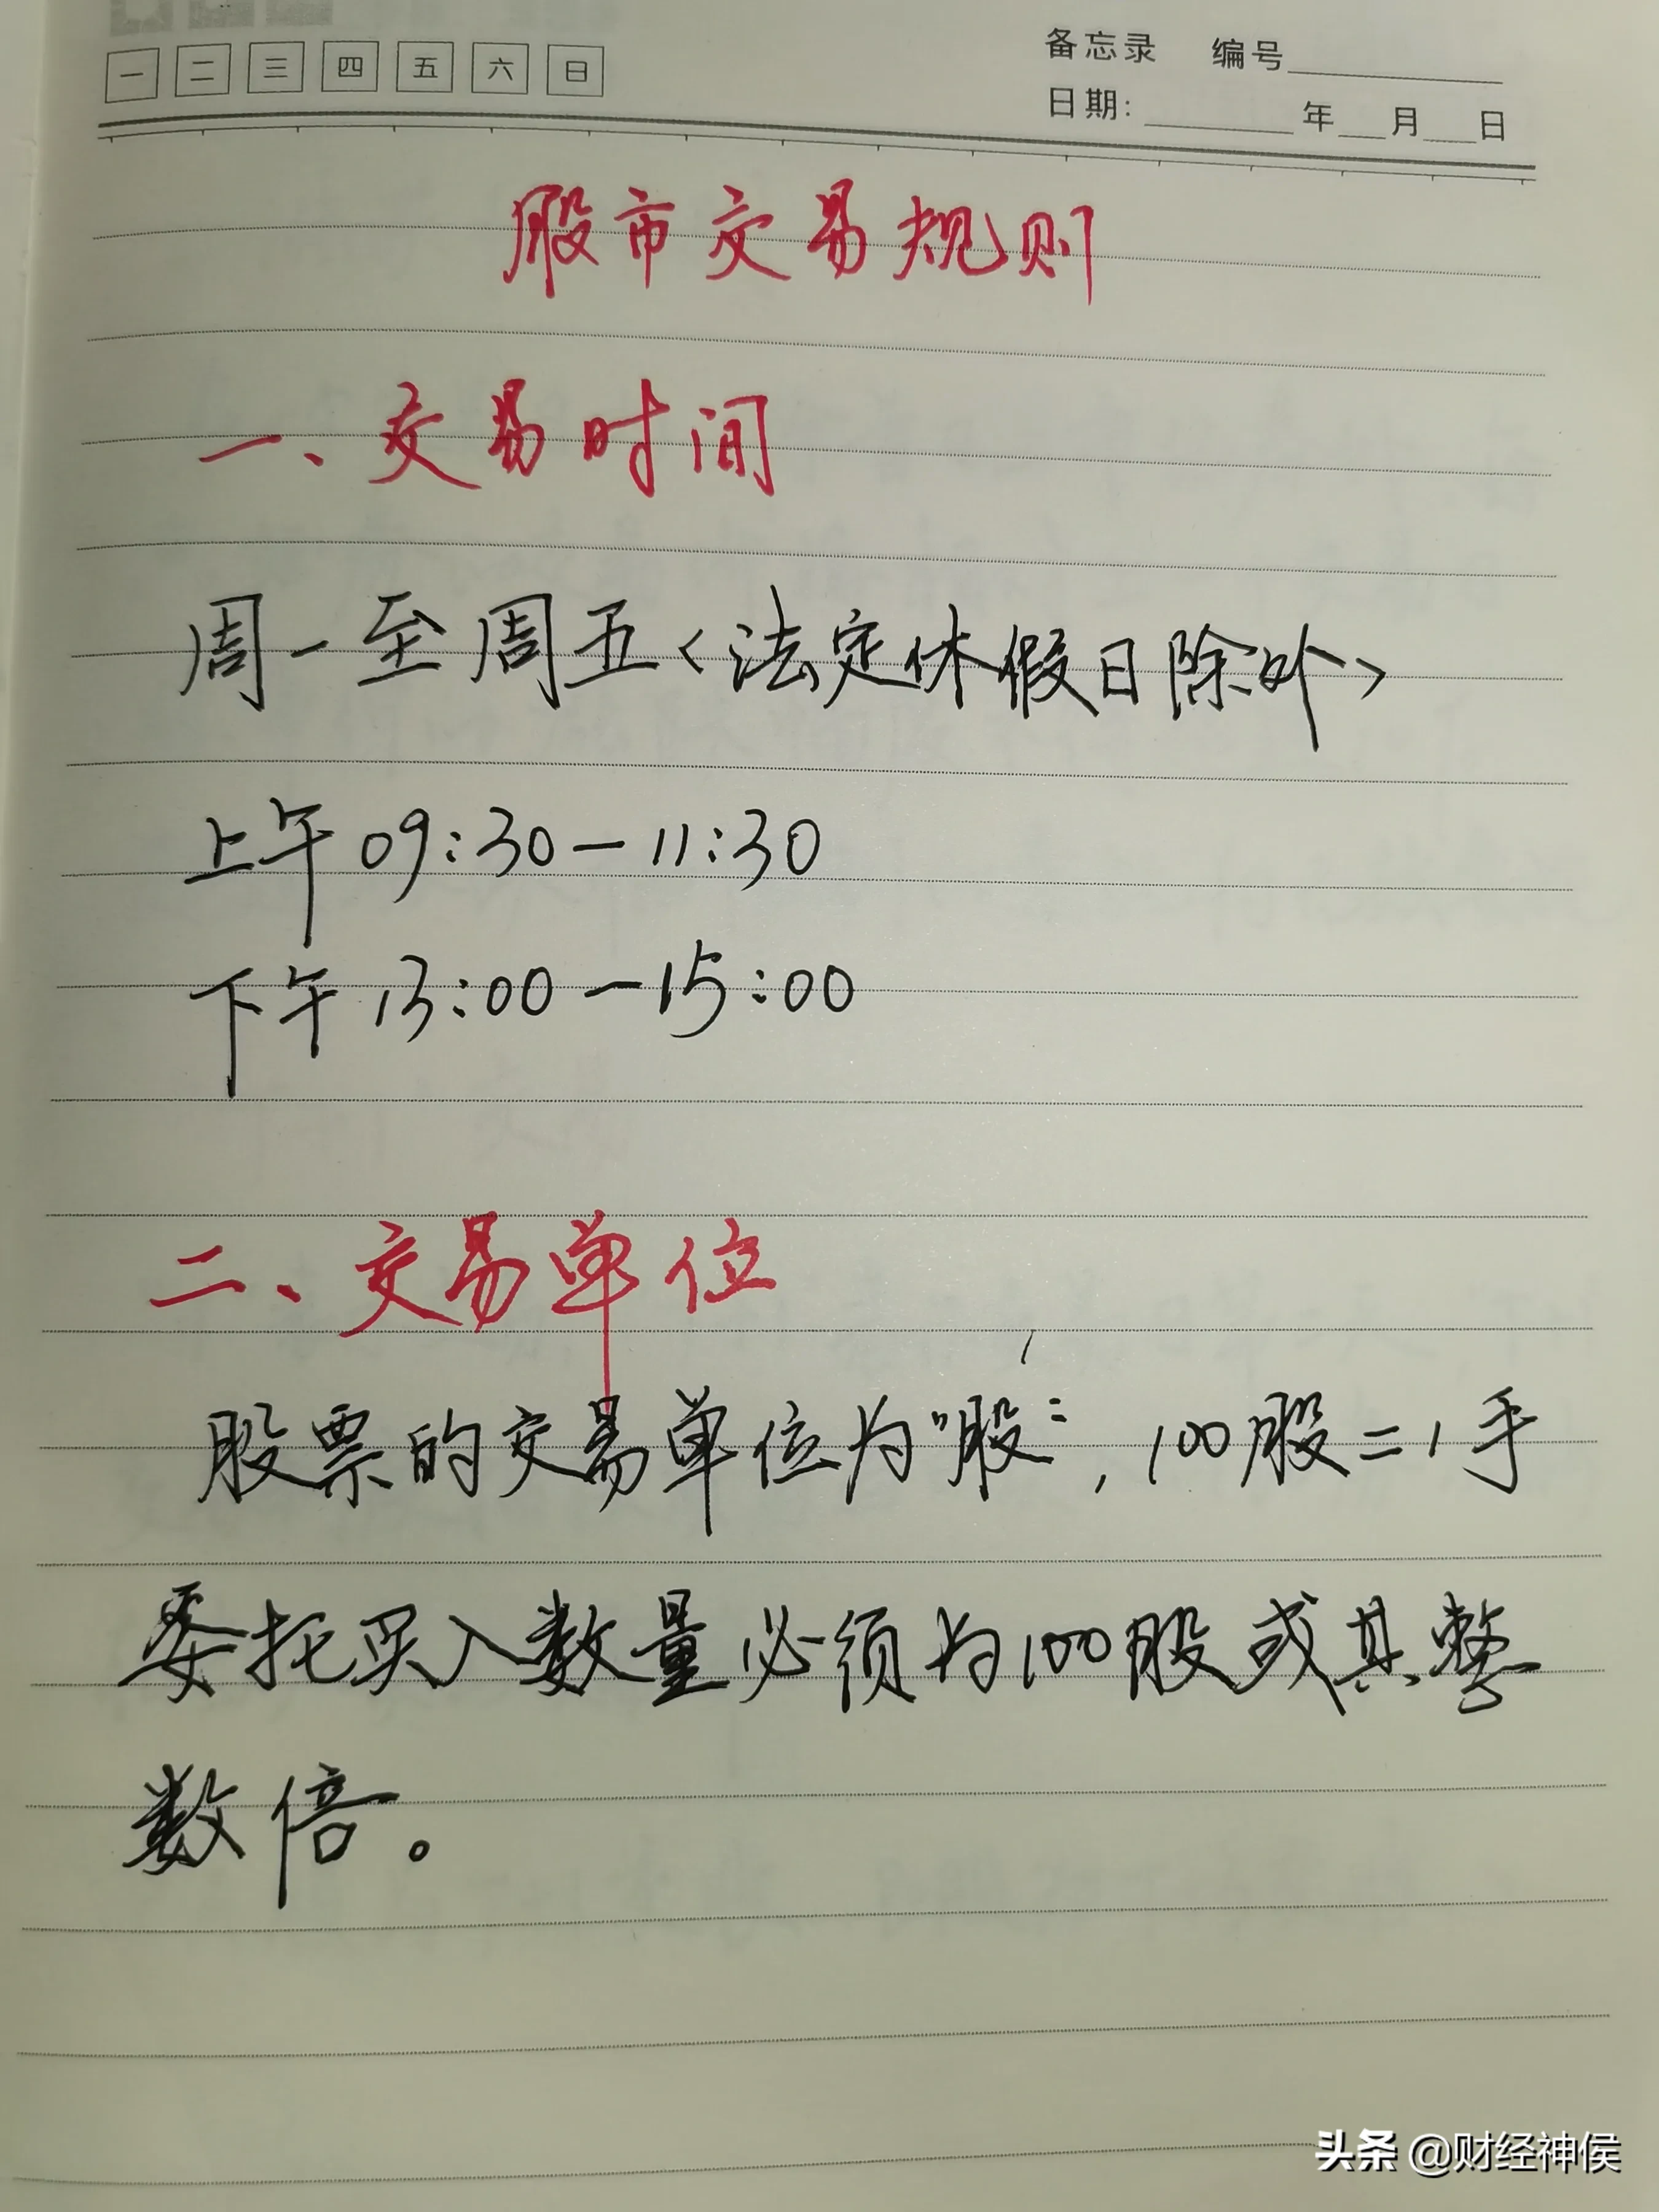 一 二 三 四 五 六 日
备忘录 编号
日期: 年 月 日
股市交易规则
一、交易时间
周一至周五<法定休假日除外>
上午09:30-11:30
下午13:00-15:00
二、交易单位
股票的交易单位为"股",100股=1手
委托买入数量必须为100股或其整
数倍。
头条 @财经神侯